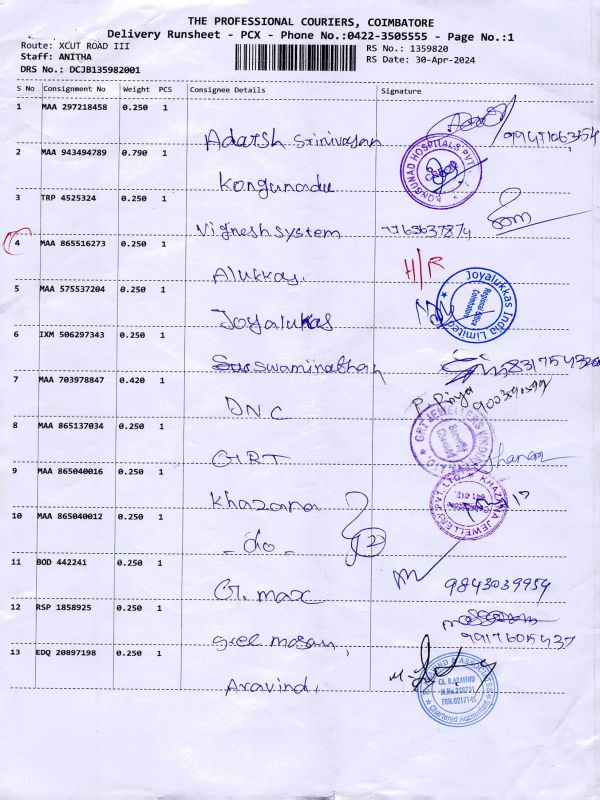 THE PROFESSIONAL COURIERS, COIMBATORE
Delivery Runsheet - PCX - Phone No.:0422-3505555 - Page No.:1
Route: XCUT ROAD III
RS No.: 1359820
Staff: ANITHA
RS Date: 30-Apr-2024
DRS No.: DCJB135982001
S No Consignment No Weight PCS Consignee Details Signature
1 MAA 297218458 0.250 1
Adarsh Srinivasan
2 MAA 943494789 0.790 1
KONGUNAD HOSPITALS PVT
Kongunadu
3 TRP 4525324 0.250 1
Vignesh system 7763637374
4 MAA 865516273 0.250 1
Alukkas. H/R
5 MAA 575537204 0.250 1
Joyalukkas India Limited
Regional Office
Coimbatore
Joyalukkas
6 IXM 506297343 0.250 1
Swaminathan
7 MAA 703978847 0.420 1
P. Priya
DNC
8 MAA 865137034 0.250 1
GRT JEWELLERS
GRT
9 MAA 865040016 0.250 1
KHAZANA JEWELLERY PVT LTD.
Khazana
10 MAA 865040012 0.250 1
- do - 2
11 BOD 442241 0.250 1
G. max 9843039954
12 RSP 1858925 0.250 1
Sree
13 EDQ 20897198 0.250 1
& ASSOCIATES
CA. R.ARAVIND
Chartered Accountant
Aravind.